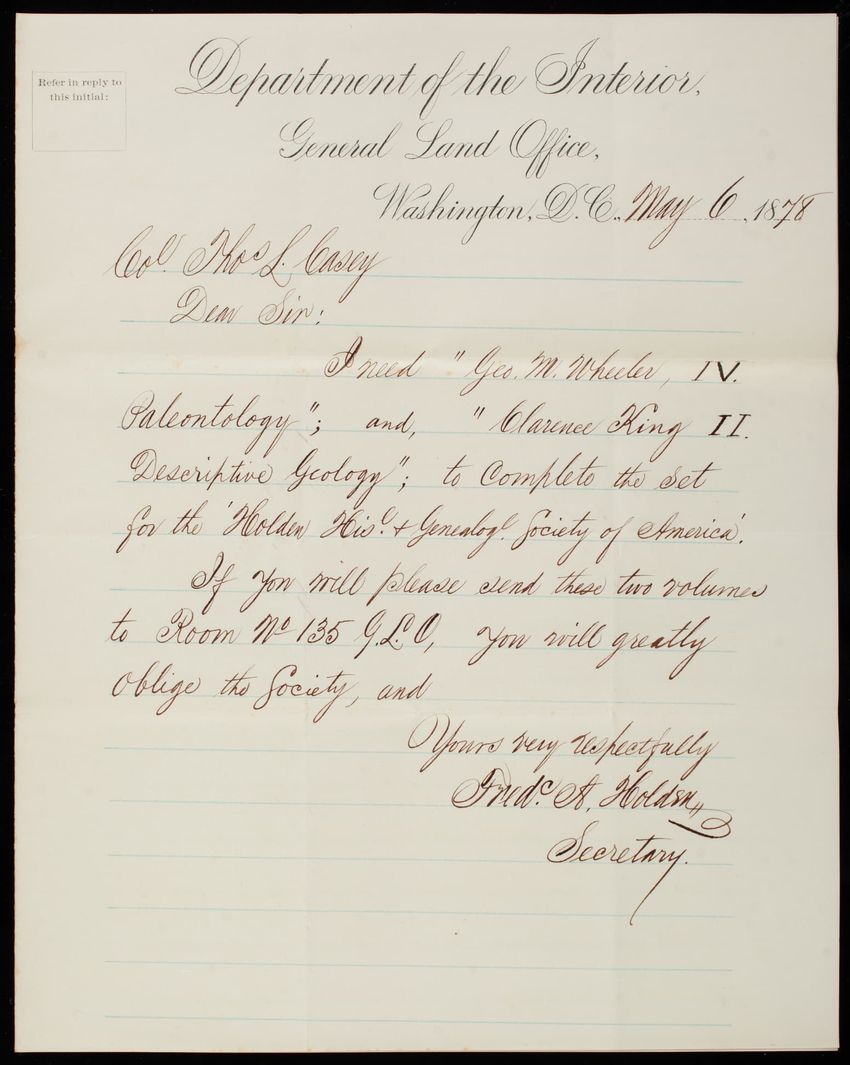 Refer in reply to
this initial:
Department of the Interior,
General Land Office,
Washington, D.C., May 6, 1878
Col. Thos L. Casey
Dear Sir:
I need "Geo. M. Wheeler, IV.
Paleontology"; and, "Clarence King II.
Descriptive Geology"; to complete the set
for the 'Holden Hisl. & Genealogl. Society of America'.
If you will please send these two volumes
to Room No 135 G.L.O, you will greatly
oblige the Society, and
Yours very respectfully
Fredc. A. Holden,
Secretary.